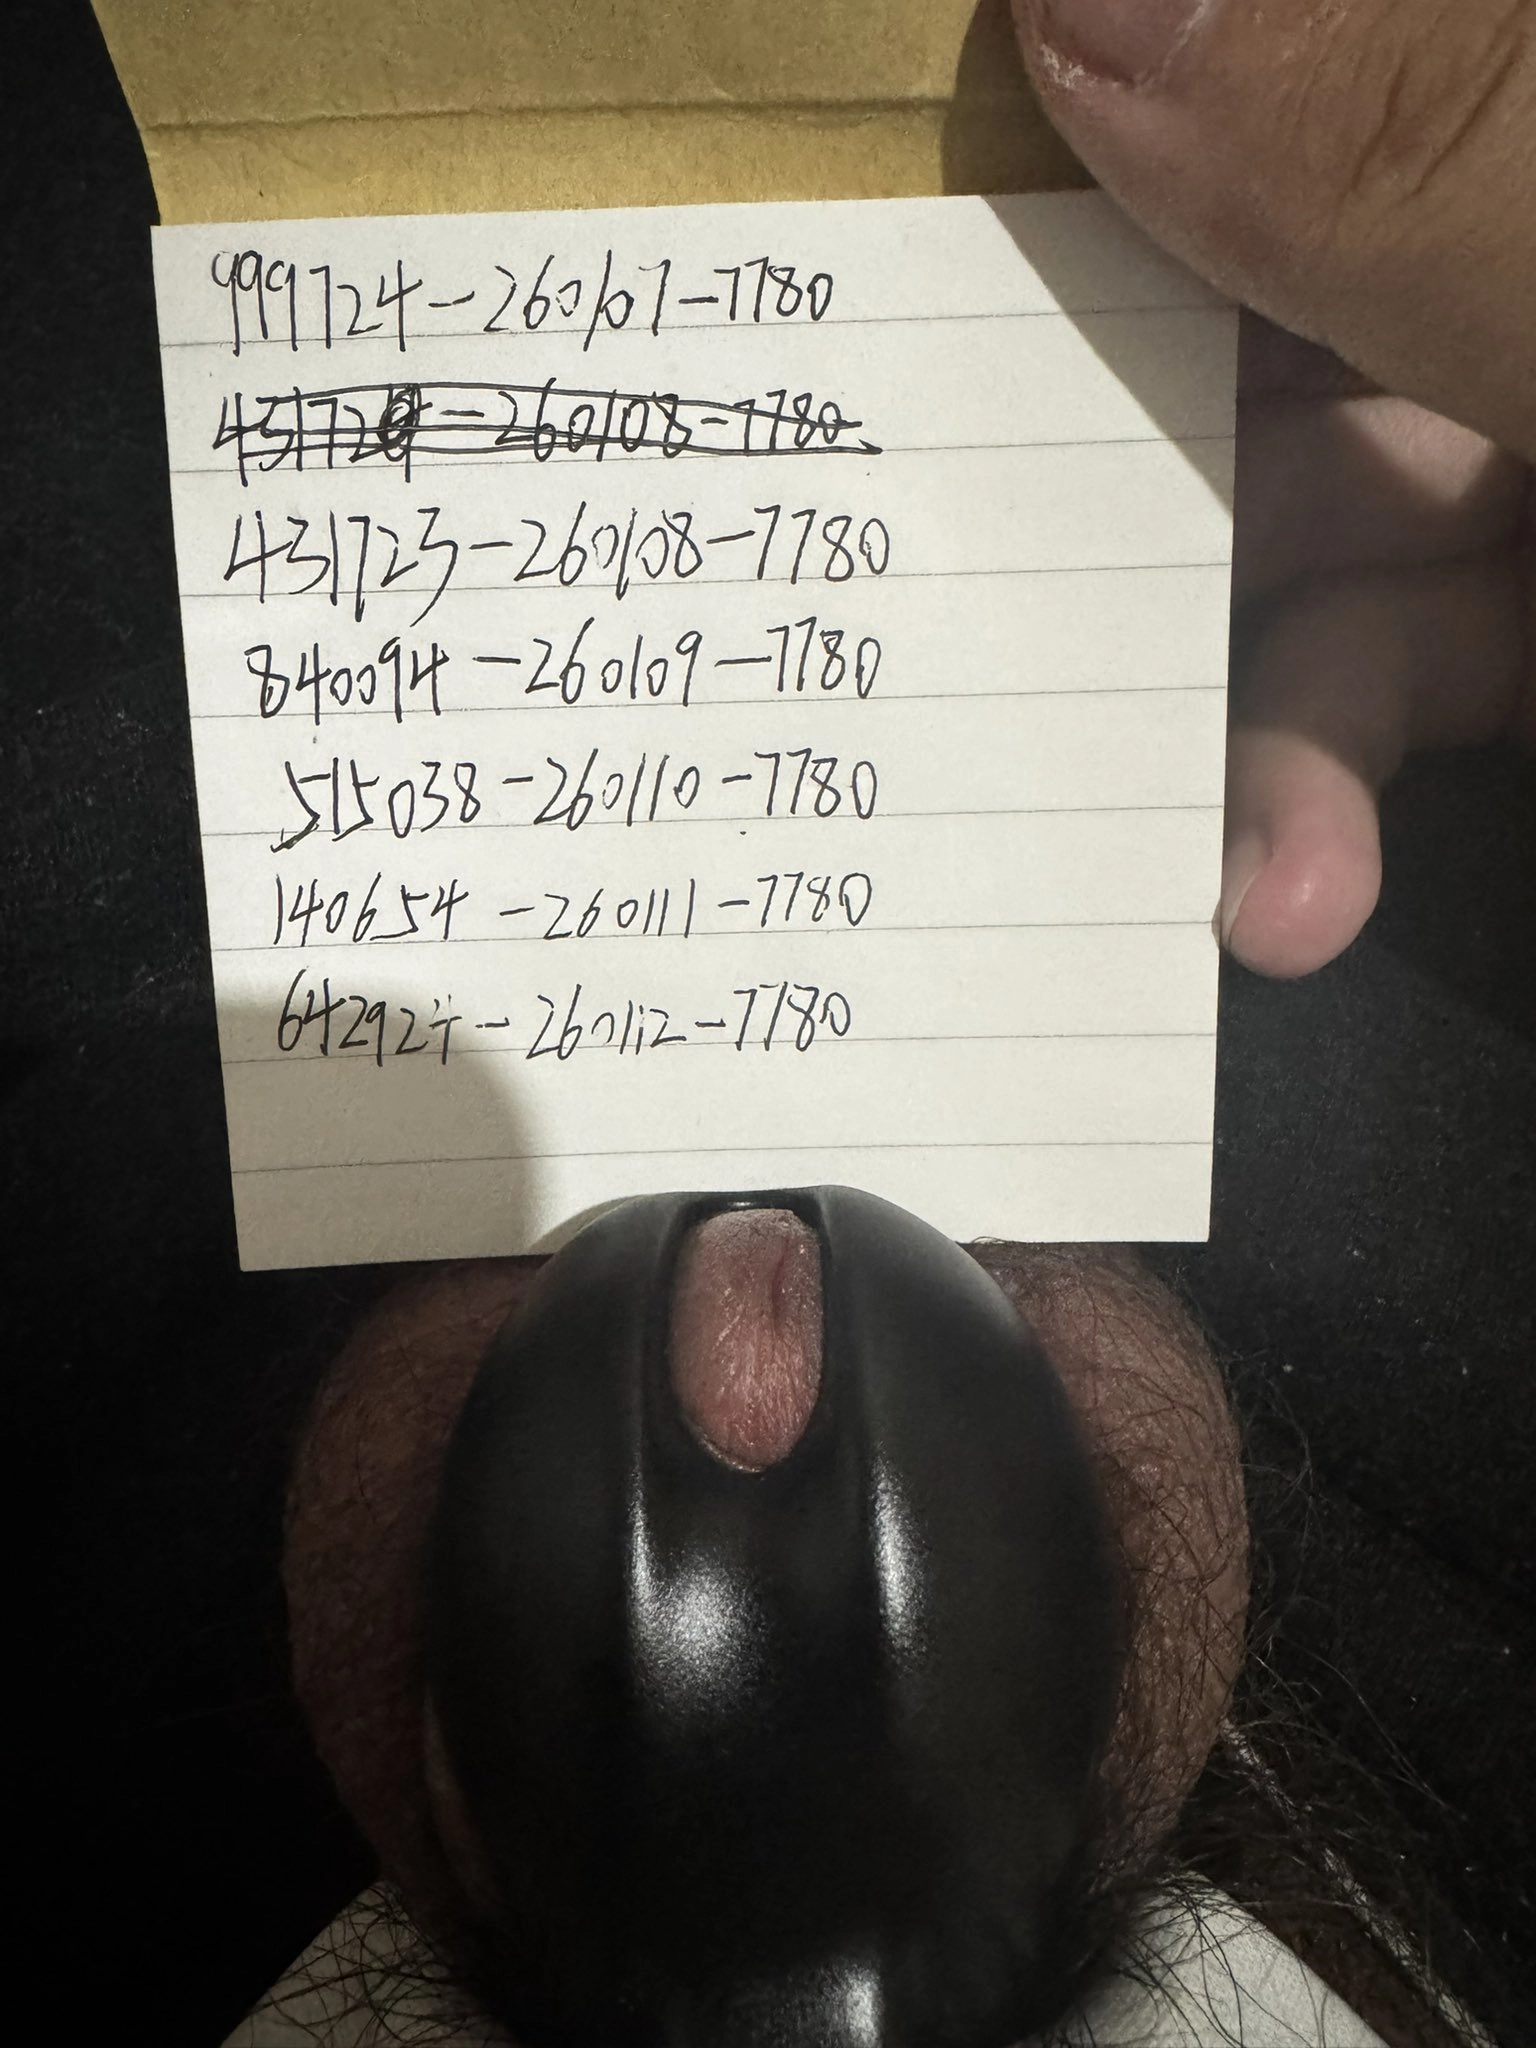 999724-260107-7780
431723-260108-7780
840094-260109-7780
515038-260110-7780
140654-260111-7780
642924-260112-7780